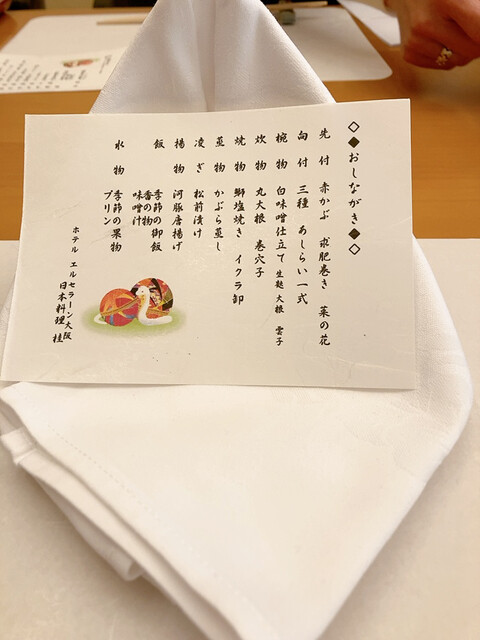 ◇◆おしながき◆◇
先付 赤かぶ 求肥巻き 菜の花
向付 三種 あしらい一式
椀物 白味噌仕立て 生麩 大根 雲子
炊物 丸大根 巻穴子
焼物 鰤塩焼き イクラ卸
蒸物 かぶら蒸し
凌ぎ 松前漬け
揚物 河豚唐揚げ
飯 季節の御飯
香の物
味噌汁
水物 季節の果物
プリン
ホテル エルセラーン大阪
日本料理 桂